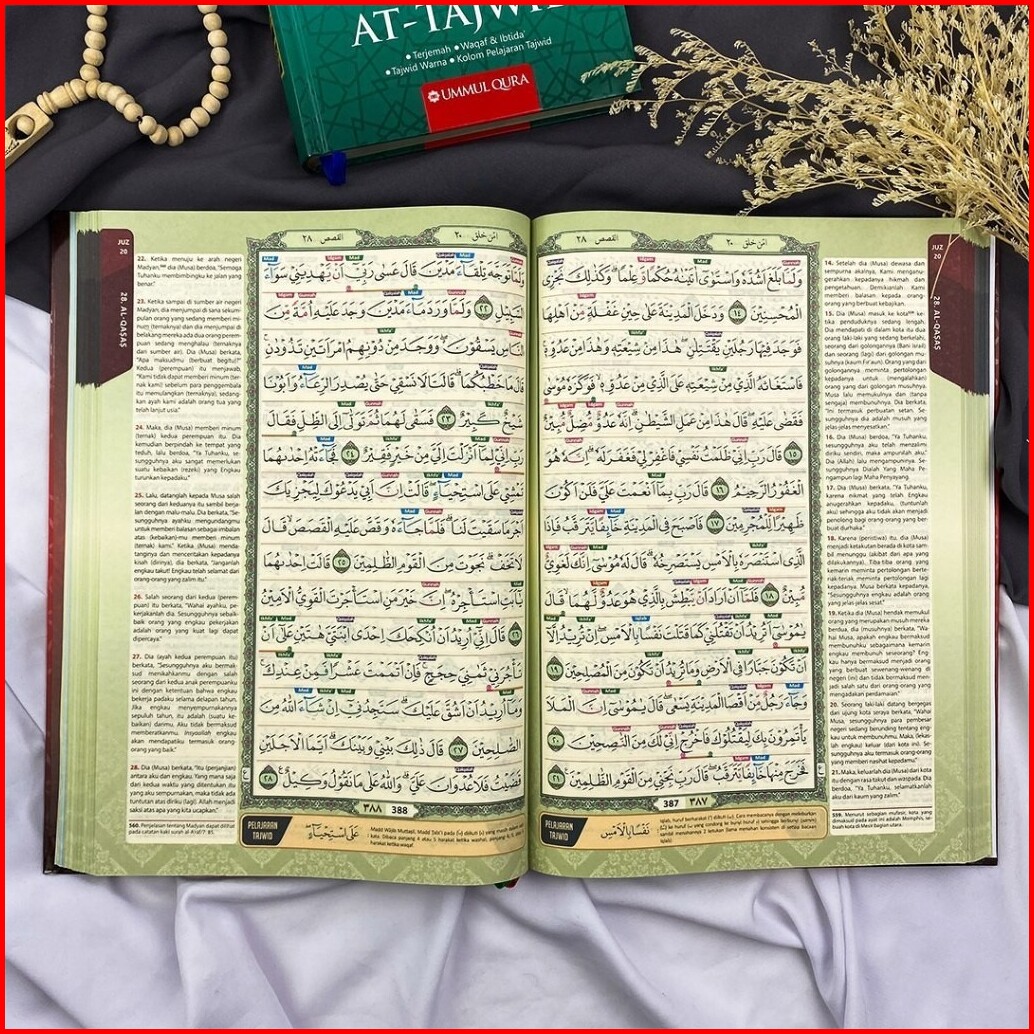 AT-TAJWID
• Terjemah • Waqaf & Ibtida'
• Tajwid Warna • Kolom Pelajaran Tajwid
UMMUL QURA
القصص ٢٨
امّن خلق ٢٠
وَلَمَّا بَلَغَ اَشُدَّهٗ وَاسْتَوٰٓى اٰتَيْنٰهُ حُكْمًا وَّعِلْمًاۗ وَكَذٰلِكَ نَجْزِى
الْمُحْسِنِيْنَ ١٤ وَدَخَلَ الْمَدِيْنَةَ عَلٰى حِيْنِ غَفْلَةٍ مِّنْ اَهْلِهَا
فَوَجَدَ فِيْهَا رَجُلَيْنِ يَقْتَتِلٰنِۖ هٰذَا مِنْ شِيْعَتِهٖ وَهٰذَا مِنْ عَدُوِّهٖۚ
فَاسْتَغَاثَهُ الَّذِيْ مِنْ شِيْعَتِهٖ عَلَى الَّذِيْ مِنْ عَدُوِّهٖۙ فَوَكَزَهٗ مُوْسٰى
فَقَضٰى عَلَيْهِۖ قَالَ هٰذَا مِنْ عَمَلِ الشَّيْطٰنِۗ اِنَّهٗ عَدُوٌّ مُّضِلٌّ مُّبِيْنٌ
١٥ قَالَ رَبِّ اِنِّيْ ظَلَمْتُ نَفْسِيْ فَاغْفِرْ لِيْ فَغَفَرَ لَهٗۗ اِنَّهٗ هُوَ
الْغَفُوْرُ الرَّحِيْمُ ١٦ قَالَ رَبِّ بِمَآ اَنْعَمْتَ عَلَيَّ فَلَنْ اَكُوْنَ
ظَهِيْرًا لِّلْمُجْرِمِيْنَ ١٧ فَاَصْبَحَ فِى الْمَدِيْنَةِ خَاۤىِٕفًا يَّتَرَقَّبُ فَاِذَا
الَّذِى اسْتَنْصَرَهٗ بِالْاَمْسِ يَسْتَصْرِخُهٗۗ قَالَ لَهٗ مُوْسٰٓى اِنَّكَ لَغَوِيٌّ
مُّبِيْنٌ ١٨ فَلَمَّآ اَنْ اَرَادَ اَنْ يَّبْطِشَ بِالَّذِيْ هُوَ عَدُوٌّ لَّهُمَاۙ قَالَ
يٰمُوْسٰٓى اَتُرِيْدُ اَنْ تَقْتُلَنِيْ كَمَا قَتَلْتَ نَفْسًاۢ بِالْاَمْسِۖ اِنْ تُرِيْدُ اِلَّآ
اَنْ تَكُوْنَ جَبَّارًا فِى الْاَرْضِ وَمَا تُرِيْدُ اَنْ تَكُوْنَ مِنَ الْمُصْلِحِيْنَ ١٩
وَجَاۤءَ رَجُلٌ مِّنْ اَقْصَا الْمَدِيْنَةِ يَسْعٰىۖ قَالَ يٰمُوْسٰٓى اِنَّ الْمَلَاَ
يَأْتَمِرُوْنَ بِكَ لِيَقْتُلُوْكَ فَاخْرُجْ اِنِّيْ لَكَ مِنَ النّٰصِحِيْنَ ٢٠
فَخَرَجَ مِنْهَا خَاۤىِٕفًا يَّتَرَقَّبُۖ قَالَ رَبِّ نَجِّنِيْ مِنَ الْقَوْمِ الظّٰلِمِيْنَ ٢١
387 ٣٨٧
PELAJARAN
TAJWID
نَفْسًاۢ بِالْاَمْسِ
JUZ
20
28. AL-QASAS
14. Setelah dia (Musa) dewasa dan
sempurna akalnya, Kami menganu-
gerahkan kepadanya hikmah dan
pengetahuan. Demikianlah Kami
memberi balasan kepada orang-
orang yang berbuat kebajikan.
15. Dia (Musa) masuk ke kota ke-
tika penduduknya sedang lengah.
Dia mendapati di dalam kota itu dua
orang laki-laki yang sedang berkelahi,
seorang dari golongannya (Bani Israil)
dan seorang (lagi) dari golongan mu-
suhnya (kaum Fir'aun). Orang yang dari
golongannya meminta pertolongan
kepadanya untuk (mengalahkan)
orang yang dari golongan musuhnya.
Musa lalu memukulnya dan (tanpa
sengaja) membunuhnya. Dia berkata,
"Ini termasuk perbuatan setan. Se-
sungguhnya dia adalah musuh yang
jelas-jelas menyesatkan."
16. Dia (Musa) berdoa, "Ya Tuhanku,
sesungguhnya aku telah menzalimi
diriku sendiri, maka ampunilah aku."
Dia (Allah) lalu mengampuninya. Se-
sungguhnya Dialah Yang Maha Pe-
ngampun lagi Maha Penyayang.
17. Dia (Musa) berkata, "Ya Tuhanku,
karena nikmat yang telah Engkau
anugerahkan kepadaku, (tolonglah
aku) sehingga aku tidak akan menjadi
penolong bagi orang-orang yang ber-
buat durhaka."
18. Karena (peristiwa) itu, dia (Musa)
menjadi ketakutan berada di kota sam-
bil menunggu (akibat dari apa yang
dilakukannya). Tiba-tiba orang yang
kemarin meminta pertolongan berte-
riak-teriak meminta pertolongan lagi
kepadanya. Musa berkata kepadanya,
"Sesungguhnya engkau adalah orang
yang jelas-jelas sesat."
19. Ketika dia (Musa) hendak memukul
orang yang merupakan musuh mereka
berdua, dia (musuhnya) berkata, "Wa-
hai Musa, apakah engkau bermaksud
membunuhku sebagaimana kemarin
engkau membunuh seseorang? Eng-
kau hanya bermaksud menjadi orang
yang berbuat sewenang-wenang di
negeri (ini) dan tidak bermaksud men-
jadi salah satu dari orang-orang yang
mengadakan perdamaian."
20. Seorang laki-laki datang bergegas
dari ujung kota seraya berkata, "Wahai
Musa, sesungguhnya para pembesar
negeri sedang berunding tentang eng-
kau untuk membunuhmu. Maka, (lekas-
lah) engkau keluar (dari kota ini). Se-
sungguhnya aku termasuk para pemberi
nasihat kepadamu."
21. Maka, keluarlah dia (Musa) dari kota
itu dengan rasa takut dan waspada. Dia
berdoa, "Ya Tuhanku, selamatkanlah
aku dari kaum yang zalim."
القصص ٢٨
امّن خلق ٢٠
وَلَمَّا تَوَجَّهَ تِلْقَاۤءَ مَدْيَنَ قَالَ عَسٰى رَبِّيْٓ اَنْ يَّهْدِيَنِيْ سَوَاۤءَ
السَّبِيْلِ ٢٢ وَلَمَّا وَرَدَ مَاۤءَ مَدْيَنَ وَجَدَ عَلَيْهِ اُمَّةً مِّنَ
النَّاسِ يَسْقُوْنَ ەۖ وَوَجَدَ مِنْ دُوْنِهِمُ امْرَاَتَيْنِ تَذُوْدٰنِۚ
قَالَ مَا خَطْبُكُمَاۗ قَالَتَا لَا نَسْقِيْ حَتّٰى يُصْدِرَ الرِّعَاۤءُ وَاَبُوْنَا
شَيْخٌ كَبِيْرٌ ٢٣ فَسَقٰى لَهُمَا ثُمَّ تَوَلّٰىٓ اِلَى الظِّلِّ فَقَالَ
رَبِّ اِنِّيْ لِمَآ اَنْزَلْتَ اِلَيَّ مِنْ خَيْرٍ فَقِيْرٌ ٢٤ فَجَاۤءَتْهُ اِحْدٰىهُمَا
تَمْشِيْ عَلَى اسْتِحْيَاۤءٍۖ قَالَتْ اِنَّ اَبِيْ يَدْعُوْكَ لِيَجْزِيَكَ
اَجْرَ مَا سَقَيْتَ لَنَاۗ فَلَمَّا جَاۤءَهٗ وَقَصَّ عَلَيْهِ الْقَصَصَۙ قَالَ
لَا تَخَفْۗ نَجَوْتَ مِنَ الْقَوْمِ الظّٰلِمِيْنَ ٢٥ قَالَتْ اِحْدٰىهُمَا
يٰٓاَبَتِ اسْتَأْجِرْهُۖ اِنَّ خَيْرَ مَنِ اسْتَأْجَرْتَ الْقَوِيُّ الْاَمِيْنُ
٢٦ قَالَ اِنِّيْٓ اُرِيْدُ اَنْ اُنْكِحَكَ اِحْدَى ابْنَتَيَّ هٰتَيْنِ عَلٰٓى اَنْ
تَأْجُرَنِيْ ثَمٰنِيَ حِجَجٍۚ فَاِنْ اَتْمَمْتَ عَشْرًا فَمِنْ عِنْدِكَۚ
وَمَآ اُرِيْدُ اَنْ اَشُقَّ عَلَيْكَۗ سَتَجِدُنِيْٓ اِنْ شَاۤءَ اللّٰهُ مِنَ
الصّٰلِحِيْنَ ٢٧ قَالَ ذٰلِكَ بَيْنِيْ وَبَيْنَكَۗ اَيَّمَا الْاَجَلَيْنِ
قَضَيْتُ فَلَا عُدْوَانَ عَلَيَّۗ وَاللّٰهُ عَلٰى مَا نَقُوْلُ وَكِيْلٌ ٢٨
٣٨٨ 388
PELAJARAN
TAJWID
عَلَى اسْتِحْيَاۤءٍ
JUZ
20
28. AL-QASAS
22. Ketika menuju ke arah negeri
Madyan, dia (Musa) berdoa, "Semoga
Tuhanku membimbingku ke jalan yang
benar."
23. Ketika sampai di sumber air negeri
Madyan, dia menjumpai di sana sekum-
pulan orang yang sedang memberi mi-
num (ternaknya) dan dia menjumpai di
belakang mereka ada dua orang perem-
puan sedang menghalau (ternaknya
dari sumber air). Dia (Musa) berkata,
"Apa maksudmu (berbuat begitu)?"
Kedua (perempuan) itu menjawab,
"Kami tidak dapat memberi minum (ter-
nak kami) sebelum para penggembala
itu memulangkan (ternaknya), sedang-
kan ayah kami adalah orang tua yang
telah lanjut usia."
24. Maka, dia (Musa) memberi minum
(ternak) kedua perempuan itu. Dia
kemudian berpindah ke tempat yang
teduh, lalu berdoa, "Ya Tuhanku, se-
sungguhnya aku sangat memerlukan
suatu kebaikan (rezeki) yang Engkau
turunkan kepadaku."
25. Lalu, datanglah kepada Musa salah
seorang dari keduanya itu sambil berja-
lan dengan malu-malu. Dia berkata, "Se-
sungguhnya ayahku mengundangmu
untuk memberi balasan sebagai imbalan
atas (kebaikan)-mu memberi minum
(ternak) kami." Ketika (Musa) menda-
tanginya dan menceritakan kepadanya
kisah (dirinya), dia berkata, "Janganlah
engkau takut! Engkau telah selamat dari
orang-orang yang zalim itu."
26. Salah seorang dari kedua (perem-
puan) itu berkata, "Wahai ayahku, pe-
kerjakanlah dia. Sesungguhnya sebaik-
baik orang yang engkau pekerjakan
adalah orang yang kuat lagi dapat
dipercaya."
27. Dia (ayah kedua perempuan itu)
berkata, "Sesungguhnya aku bermak-
sud menikahkanmu dengan salah
seorang dari kedua anak perempuanku
ini dengan ketentuan bahwa engkau
bekerja padaku selama delapan tahun.
Jika engkau menyempurnakannya
sepuluh tahun, itu adalah (suatu ke-
baikan) darimu. Aku tidak bermaksud
memberatkanmu. Insyaallah engkau
akan mendapatiku termasuk orang-
orang yang baik."
28. Dia (Musa) berkata, "Itu (perjanjian)
antara aku dan engkau. Yang mana saja
dari kedua waktu yang ditentukan itu
yang aku sempurnakan, maka tidak ada
tuntutan atas diriku (lagi). Allah menjadi
saksi atas apa yang kita ucapkan."